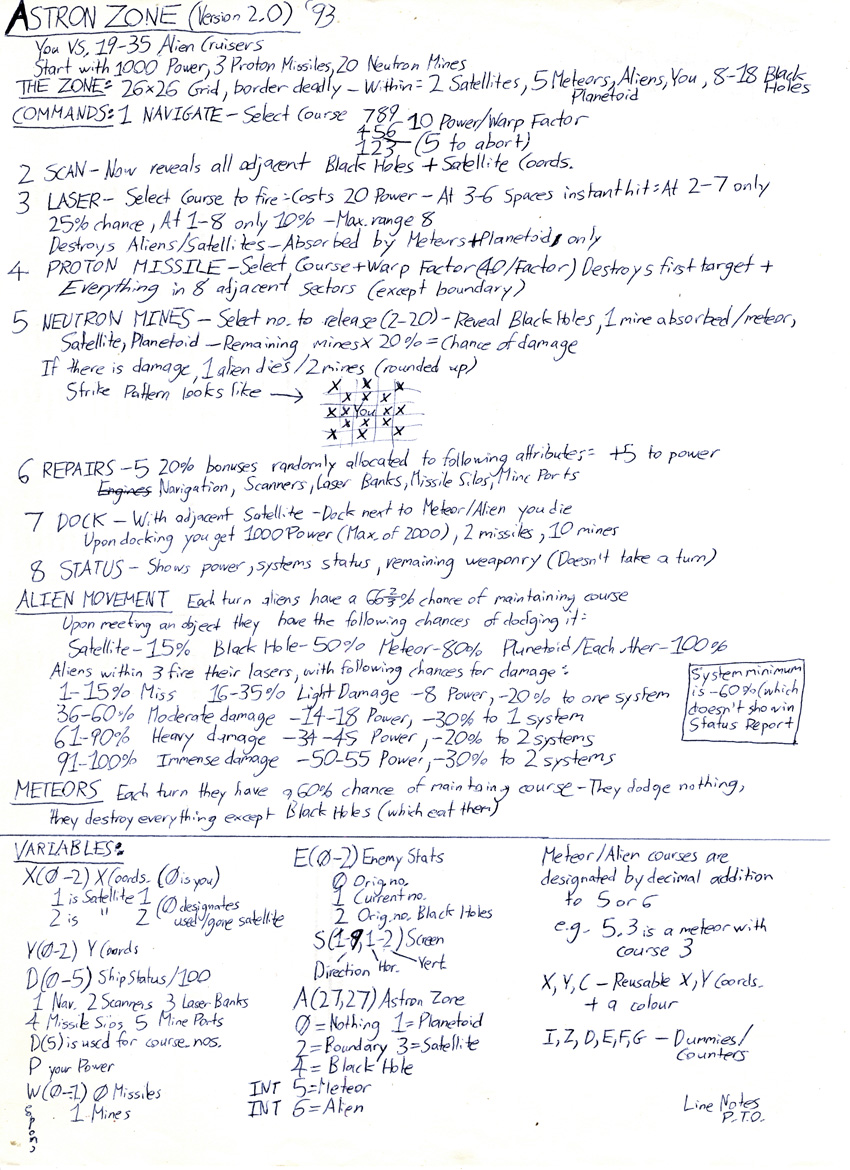 ASTRON ZONE (Version 2.0) '93
You VS. 19-35 Alien Cruisers
Start with 1000 Power, 3 Proton Missiles, 20 Neutron Mines
THE ZONE: 26x26 Grid, border deadly - Within = 2 Satellites, 5 Meteors, Aliens, You, 8-18 Black Holes
Planetoid
COMMANDS: 1 NAVIGATE - Select Course 789 10 Power/Warp Factor
456
123 (5 to abort)
2 SCAN - Now reveals all adjacent Black Holes + Satellite Coords.
3 LASER - Select Course to fire = Costs 20 Power - At 3-6 Spaces instant hit = At 2-7 only
25% chance, At 1-8 only 10% - Max. range 8
Destroys Aliens/Satellites - Absorbed by Meteors + Planetoid only
4 PROTON MISSILE - Select Course + Warp Factor (40/Factor) Destroys first target +
Everything in 8 adjacent sectors (except boundary)
5 NEUTRON MINES - Select no. to release (2-20) - Reveal Black Holes, 1 mine absorbed/meteor,
Satellite, Planetoid - Remaining mines x 20% = Chance of damage
If there is damage, 1 alien dies/2 mines (rounded up)
Strike Pattern looks like →
X X X
X X X
X X You X X
X X X
X X X
6 REPAIRS - 5 20% bonuses randomly allocated to following attributes = +5 to power
Engines Navigation, Scanners, Laser Banks, Missile Silos, Mine Ports
7 DOCK - With adjacent Satellite - Dock next to Meteor/Alien you die
Upon docking you get 1000 Power (Max. of 2000), 2 missiles, 10 mines
8 STATUS - Shows power, systems status, remaining weaponry (Doesn't take a turn)
ALIEN MOVEMENT Each turn aliens have a 66 2/3% chance of maintaining course
Upon meeting an object they have the following chances of dodging it:
Satellite - 15% Black Hole - 50% Meteor - 80% Planetoid/Each other - 100%
Aliens within 3 fire their lasers, with following chances for damage:
1-15% Miss 16-35% Light Damage -8 Power, -20% to one system
36-60% Moderate damage -14-18 Power, -30% to 1 system
61-90% Heavy damage -34-45 Power, -20% to 2 systems
91-100% Immense damage -50-55 Power, -30% to 2 systems
System minimum
is -60% (which
doesn't show in
Status Report
METEORS Each turn they have a 60% chance of maintaing course - They dodge nothing,
they destroy everything except Black Holes (which eat them)
VARIABLES:
X(0-2) X Coords. (0 is you)
1 is Satellite 1
2 is " 2
(0 designates
used/gone satellite
Y(0-2) Y Coords
D(0-5) Ship Status/100
1 Nav. 2 Scanners 3 Laser Banks
4 Missile Silos 5 Mine Ports
D(5) is used for course nos.
P your Power
W(0-1) 0 Missiles
1 - Mines
E(0-2) Enemy Stats
0 Orig. no.
1 Current no.
2 Orig. no. Black Holes
S(1-9, 1-2) Screen
Direction Hor. Vert.
A(27,27) Astron Zone
0 = Nothing 1 = Planetoid
2 = Boundary 3 = Satellite
4 = Black Hole
INT 5 = Meteor
INT 6 = Alien
Meteor/Alien courses are
designated by decimal addition
to 5 or 6
e.g. 5.3 is a meteor with
course 3
X, Y, C - Reusable X, Y Coords.
+ a colour
I, Z, D, E, F, G - Dummies/
Counters
Line Notes
P.T.O.